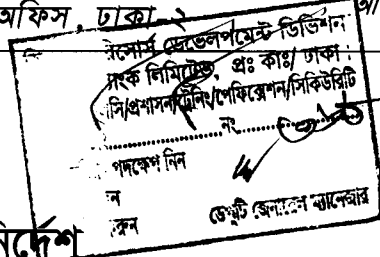 অফিস, ঢাকা-২
রিসোর্স ডেভেলপমেন্ট ডিভিশন
ংক লিমিটেড, প্রঃ কাঃ/ ঢাকা।
সি/প্রশাসন/ট্রেনিং/পেনশন/সিকিউরিটি
নং
পদক্ষেপ নিন
ন
রুন
ডেপুটি জেনারেল ম্যানেজার
নির্দেশ